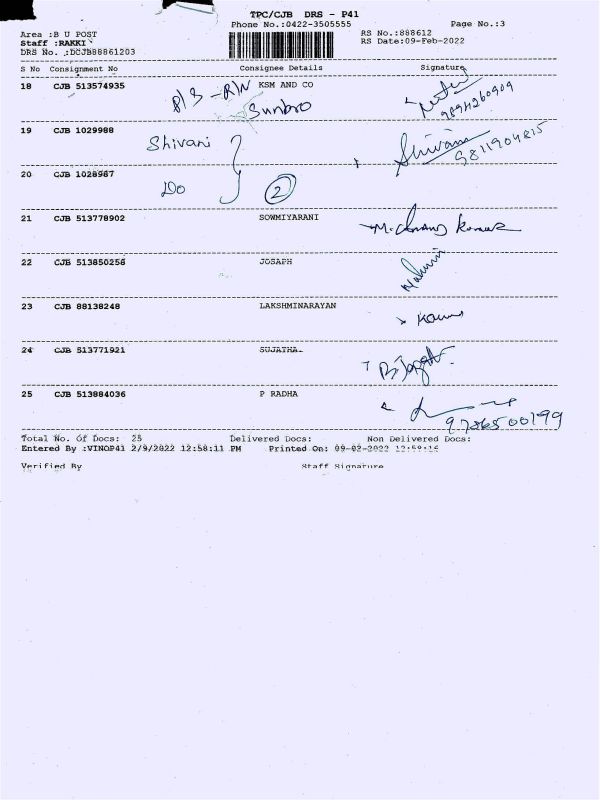 TPC/CJB DRS - P41
Phone No.:0422-3505555
Page No.:3
Area :B U POST
Staff :RAKKI
DRS No. :DCJB88861203
RS No.:888612
RS Date:09-Feb-2022
S No Consignment No Consignee Details Signature
18 CJB 513574935 KSM AND CO
Sunbro
9894260909
19 CJB 1029988 Shivani Shivani
9811904815
20 CJB 1028967 Do 2
21 CJB 513778902 SOWMIYARANI
22 CJB 513850256 JOSAPH
23 CJB 88138248 LAKSHMINARAYAN
24 CJB 513771921 SUJATHA
25 CJB 513884036 P RADHA
Total No. Of Docs: 25 Delivered Docs: Non Delivered Docs:
Entered By :VINOP41 2/9/2022 12:58:11 PM Printed On: 09-02-2022 12:59:16
Verified By Staff Signature